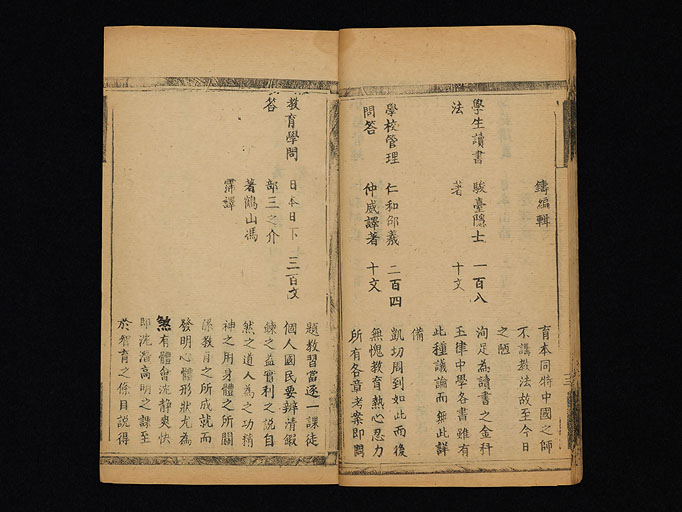 鑄編輯
育本同特中國之師
不講教法故至今日
之陋
學生讀書 駿臺隱士 一百八
法 著 十文
洵足為讀書之金科
玉律中學各書雖有
此種議論而無此詳
備
學校管理 仁和邵羲 二百四
問答 仲威譯著 十文
凱切周到如此而後
無愧教育熱心忍力
所有各章考案即問
題教習當逐一課徒
教育學問 日本日下 三百文
答 部三之介
著鶴山馮
霈譯
個人國民要辨清鍛
鍊之益實利之說自
然之道人為之功精
神之用身體之所關
係教育之所成就而
發明心體形狀尤為
煞有體會沈靜爽快
即沈潛高明之課至
於智育之條目說得